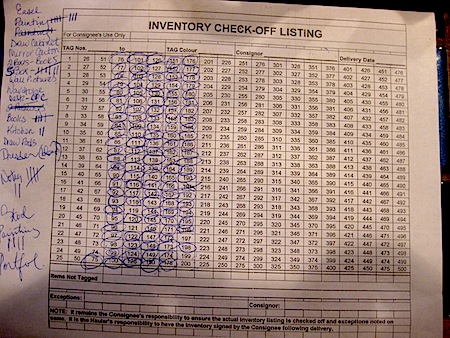 Easel
Painting
INVENTORY CHECK-OFF LISTING
For Consignee's Use Only
TAG Nos. to TAG Colour Consignor Delivery Date
1 26 51 76 101 126 151 176 201 226 251 276 301 326 351 376 401 426 451 476
2 27 52 77 102 127 152 177 202 227 252 277 302 327 352 377 402 427 452 477
3 28 53 78 103 128 153 178 203 228 253 278 303 328 353 378 403 428 453 478
4 29 54 79 104 129 154 179 204 229 254 279 304 329 354 379 404 429 454 479
5 30 55 80 105 130 155 180 205 230 255 280 305 330 355 380 405 430 455 480
6 31 56 81 106 131 156 181 206 231 256 281 306 331 356 381 406 431 456 481
7 32 57 82 107 132 157 182 207 232 257 282 307 332 357 382 407 432 457 482
8 33 58 83 108 133 158 183 208 233 258 283 308 333 358 383 408 433 458 483
9 34 59 84 109 134 159 184 209 234 259 284 309 334 359 384 409 434 459 484
10 35 60 85 110 135 160 185 210 235 260 285 310 335 360 385 410 435 460 485
11 36 61 86 111 136 161 186 211 236 261 286 311 336 361 386 411 436 461 486
12 37 62 87 112 137 162 187 212 237 262 287 312 337 362 387 412 437 462 487
13 38 63 88 113 138 163 188 213 238 263 288 313 338 363 388 413 438 463 488
14 39 64 89 114 139 164 189 214 239 264 289 314 339 364 389 414 439 464 489
15 40 65 90 115 140 165 190 215 240 265 290 315 340 365 390 415 440 465 490
16 41 66 91 116 141 166 191 216 241 266 291 316 341 366 391 416 441 466 491
17 42 67 92 117 142 167 192 217 242 267 292 317 342 367 392 417 442 467 492
18 43 68 93 118 143 168 193 218 243 268 293 318 343 368 393 418 443 468 493
19 44 69 94 119 144 169 194 219 244 269 294 319 344 369 394 419 444 469 494
20 45 70 95 120 145 170 195 220 245 270 295 320 345 370 395 420 445 470 495
21 46 71 96 121 146 171 196 221 246 271 296 321 346 371 396 421 446 471 496
22 47 72 97 122 147 172 197 222 247 272 297 322 347 372 397 422 447 472 497
23 48 73 98 123 148 173 198 223 248 273 298 323 348 373 398 423 448 473 498
24 49 74 99 124 149 174 199 224 249 274 299 324 349 374 399 424 449 474 499
25 50 75 100 125 150 175 200 225 250 275 300 325 350 375 400 425 450 475 500
Books
Kitchen
Painting
Items Not Tagged
Exceptions: Consignor:
NOTE: It remains the Consignee's responsibility to ensure the actual inventory listing is checked off and exceptions noted on
same. It is the Hauler's responsibility to have the inventory signed by the Consignee following delivery.